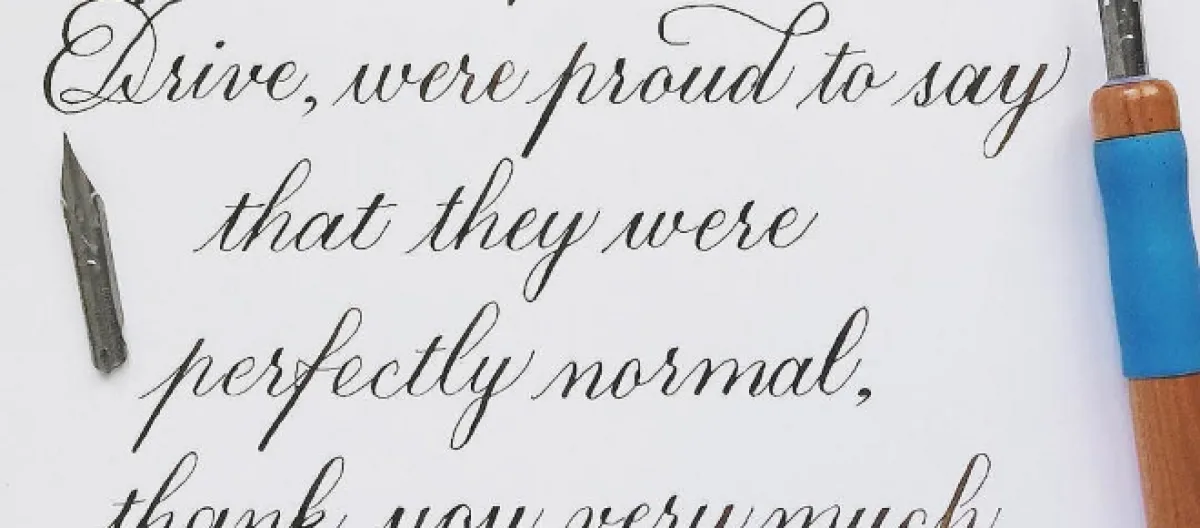 Drive, were proud to say
that they were
perfectly normal,
thank you very much